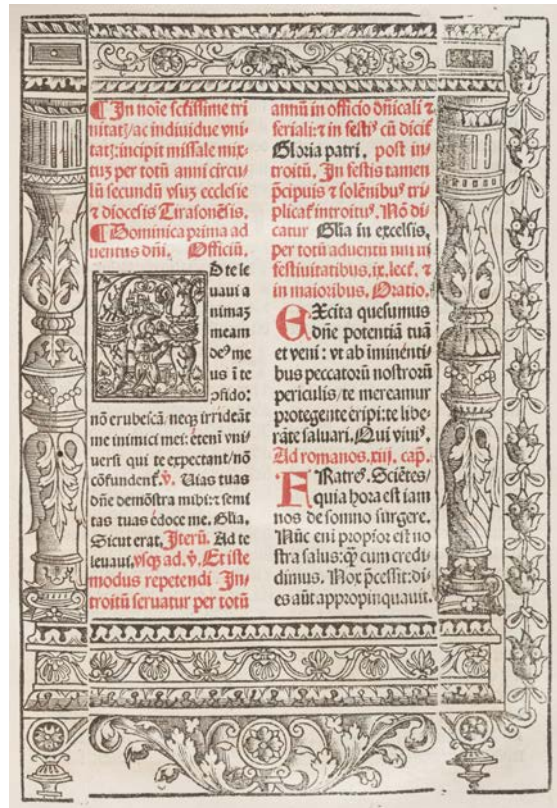 ¶ In noīe sctīssime tri
nitatꝫ/ac indiuidue vni
tatꝫ: incipit missale mix⸗
tuꝫ per totū anni circu⸗
lū secundū vsuꝫ ecclesie
⁊ diocesis Tirasonēsis.
¶ Dominica prima ad
uentus dn̄i. Officiū.
AD te le
uaui a
nimaꝫ
meam
deꝰ me
us ī te
ꝯfido:
nō erubescā/neqꝫ irrideāt
me inimici mei: etenī vni⸗
uersi qui te expectant/nō
cōfundenť. ℣. Uias tuas
dn̄e demōstra mihi: ⁊ semi
tas tuas edoce me. Gl̄ia.
Sicut erat. Iterū. Ad te
leuaui, vsqꝫ ad. ℣. Et iste
modus repetendi In⸗
troitū seruatur per totū
annū in officio dn̄icali ⁊
feriali: ⁊ in festꝭ cū dicit̄
Gloria patri. post in⸗
troitū. In festis tamen
p̄cipuis ⁊ solēnibꝰ tri⸗
plicat̄ introitꝰ. Nō di⸗
catur Gl̄ia in excelsis,
per totū aduentū nisi in
festiuitatibus. ix. lect̄. ⁊
in maioribus. Oratio.
EXcita quesumus
dn̄e potentiā tuā
et veni: vt ab īminēnti⸗
bus peccatorū nostrorū
periculis/te mereamur
protegente eripi: te libe⸗
rāte saluari. Qui viuiꝭ.
Ad romanos. xiij. cap̄.
FRatreꝭ. Sciētes/
quia hora est iam
nos de somno surgere.
Nūc eni propior est no
stra salus: qꝫ cum credi⸗
dimus. Nox p̄cessit: di⸗
es aūt appropinquauit.